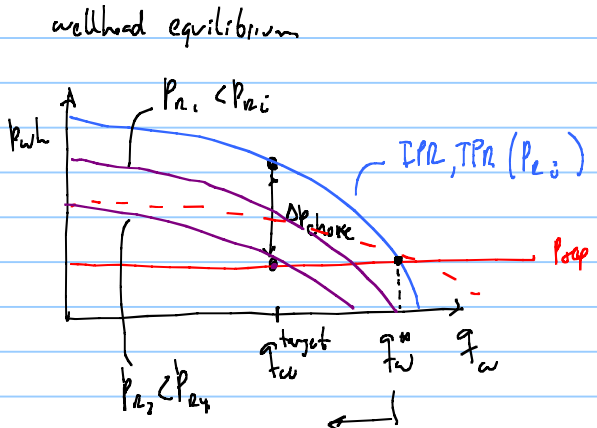 wellhead equilibrium
PR1 < PRi
Pwh
IPR, TPR (PRi)
ΔPchoke
Psep
qw target
qw*
qw